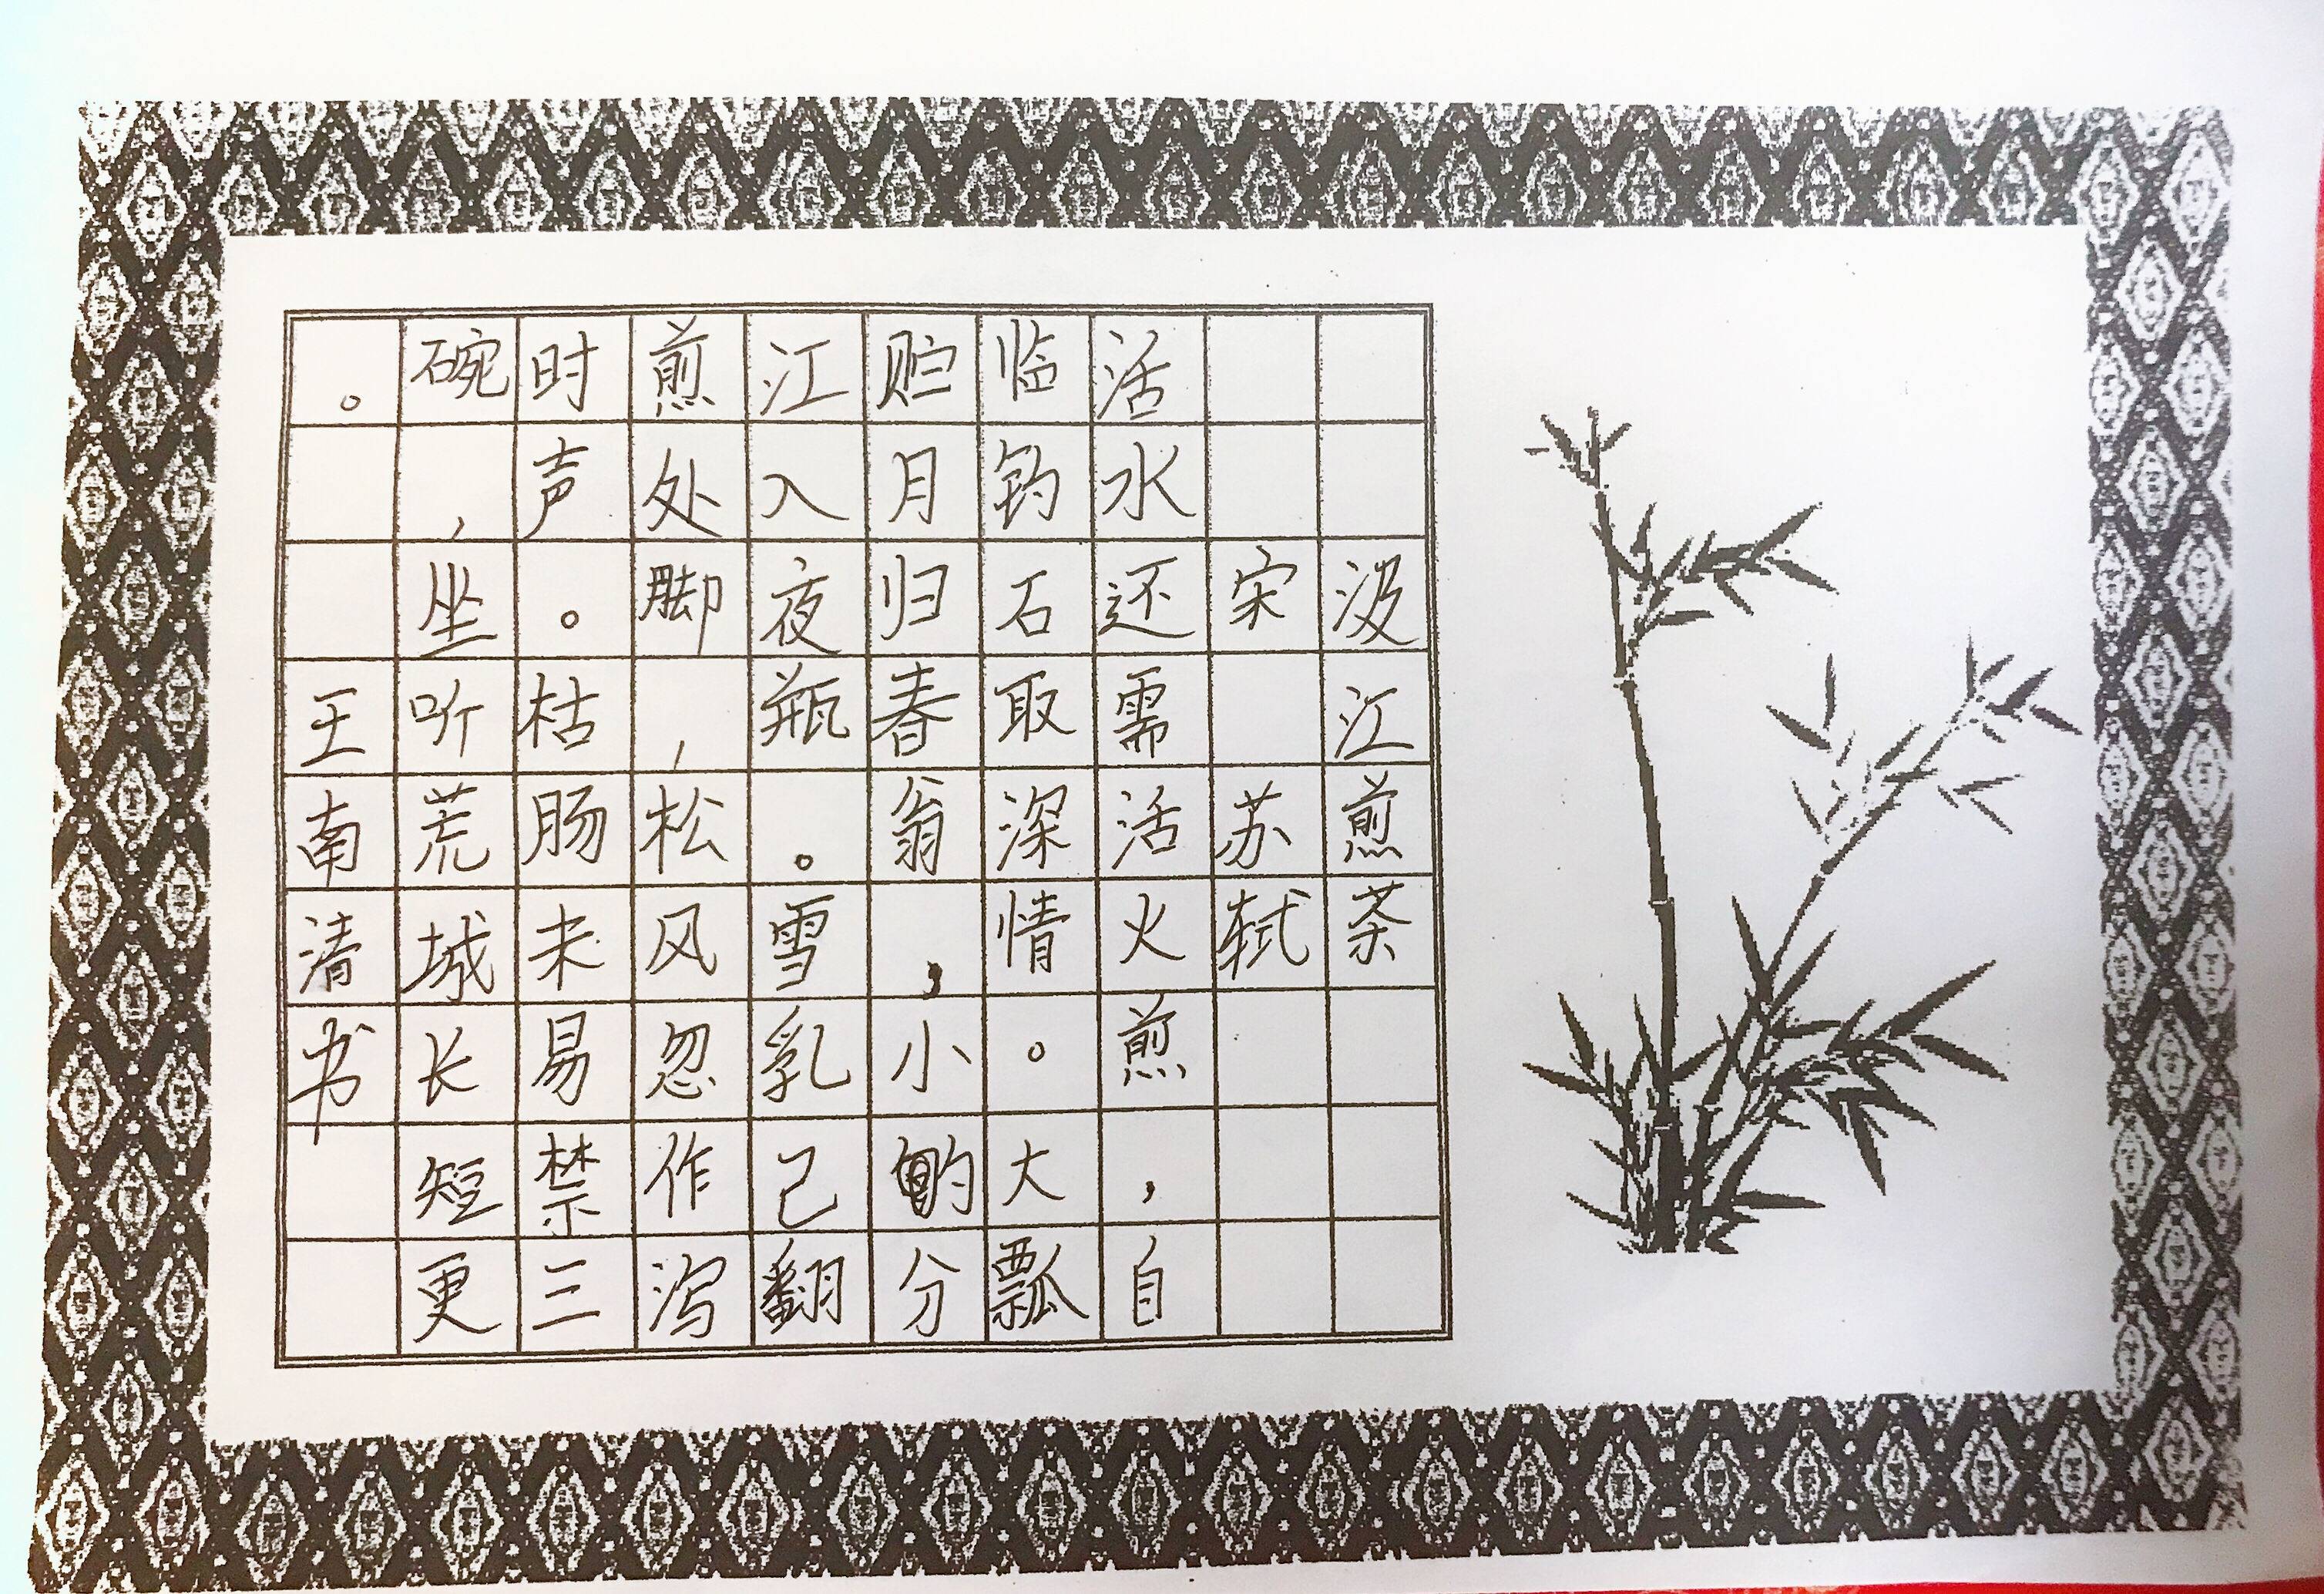 汲江煎茶
宋 苏轼
活水还需活火煎，自
临钓石取深情。大瓢
贮月归春翁，小酌分
江入夜瓶。雪乳己翻
煎处脚，松风忽作泻
时声。枯肠未易禁三
碗，坐听荒城长短更
。王南清书